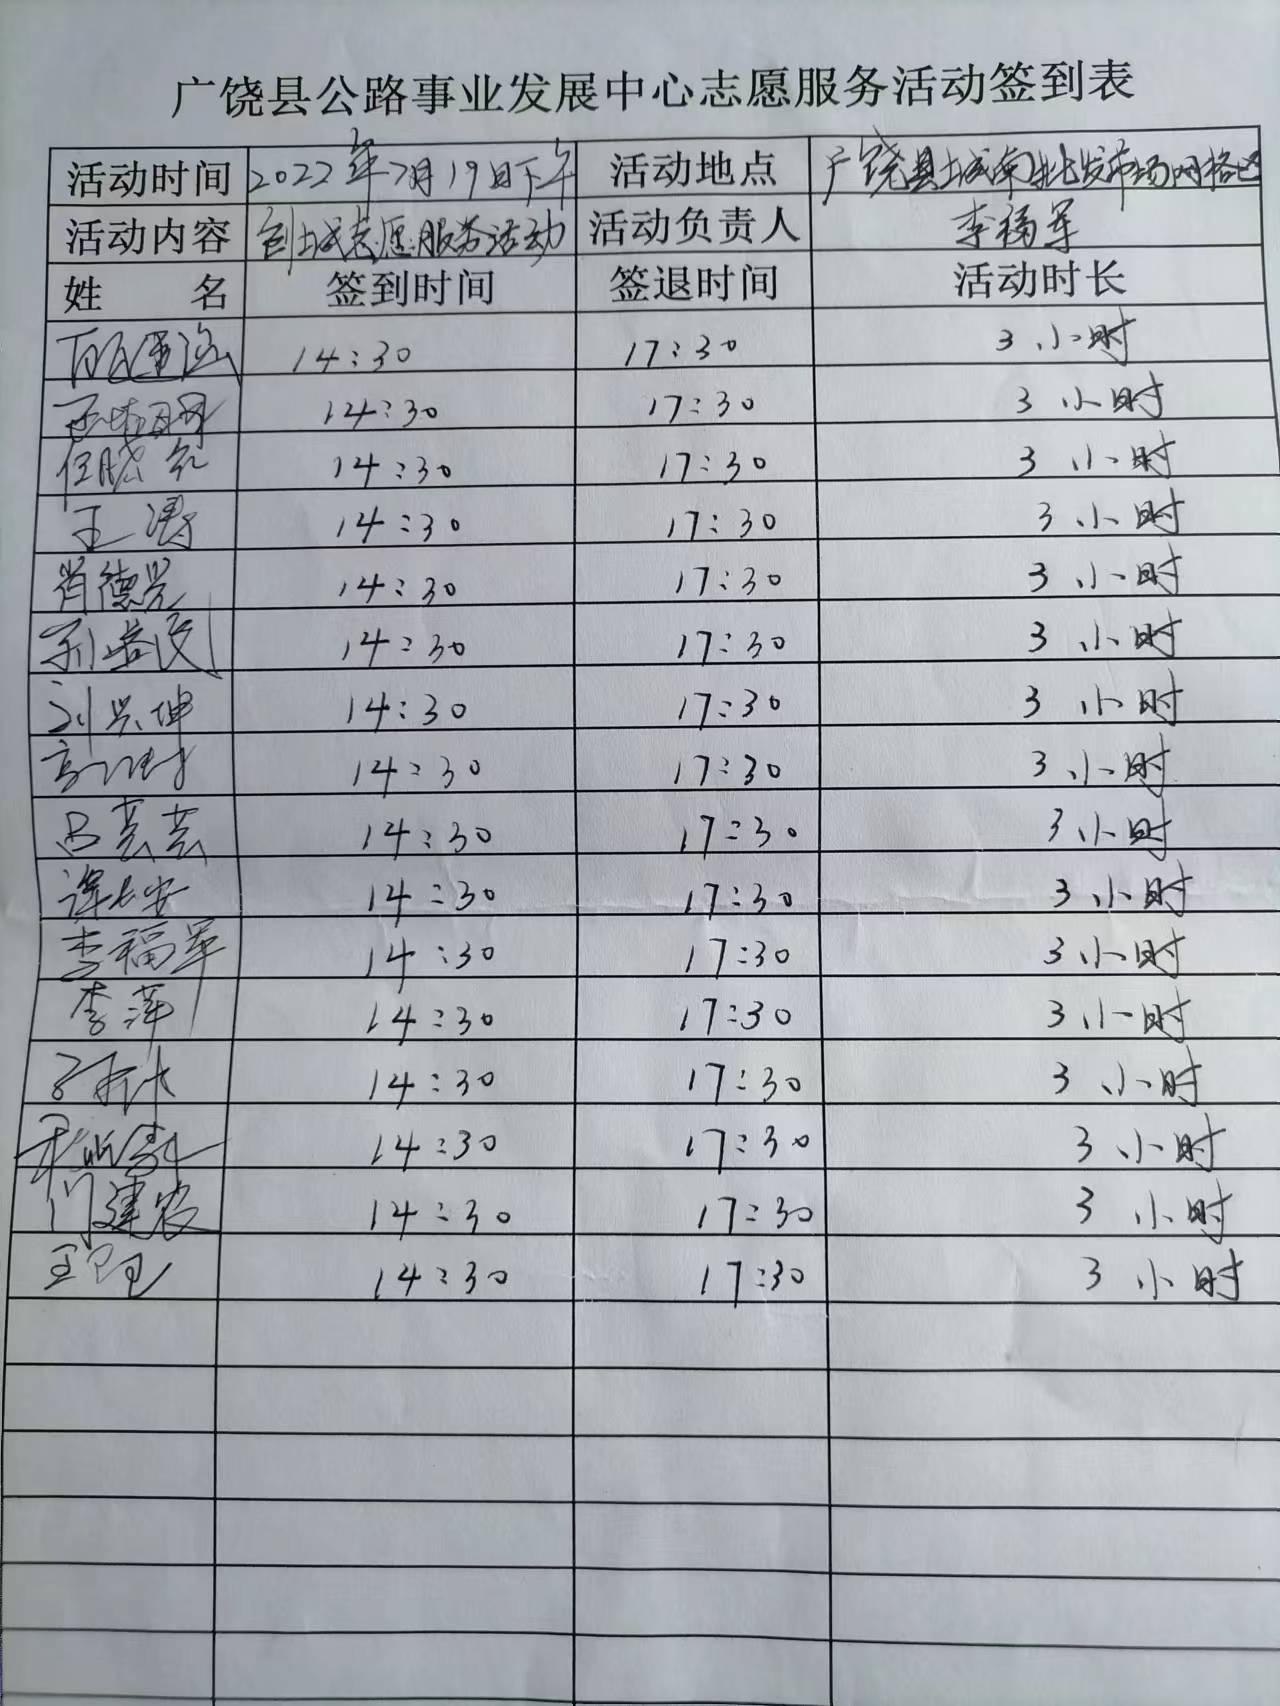 广饶县公路事业发展中心志愿服务活动签到表
活动时间 2022年7月19日下午 活动地点 广饶县城南批发市场网格区
活动内容 创城志愿服务活动 活动负责人 李福军
姓 名 签到时间 签退时间 活动时长
14:30 17:30 3小时
14:30 17:30 3小时
任晓红 14:30 17:30 3小时
王涛 14:30 17:30 3小时
肖德光 14:30 17:30 3小时
14:30 17:30 3小时
刘兴坤 14:30 17:30 3小时
14:30 17:30 3小时
吕芸芸 14:30 17:30 3小时
谭长安 14:30 17:30 3小时
李福军 14:30 17:30 3小时
李萍 14:30 17:30 3小时
14:30 17:30 3小时
14:30 17:30 3小时
门建农 14:30 17:30 3小时
14:30 17:30 3小时